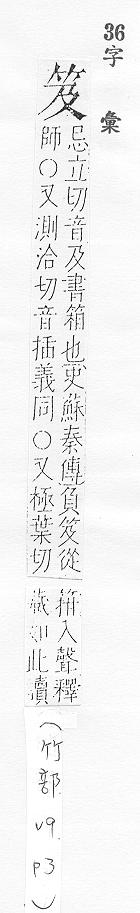 36字 彙
笈
忌立切音及書箱也史蘇秦傳負笈從
師○又測洽切音插義同○又極葉切
箝入聲釋
藏如此讀
(竹部 v9 p3)